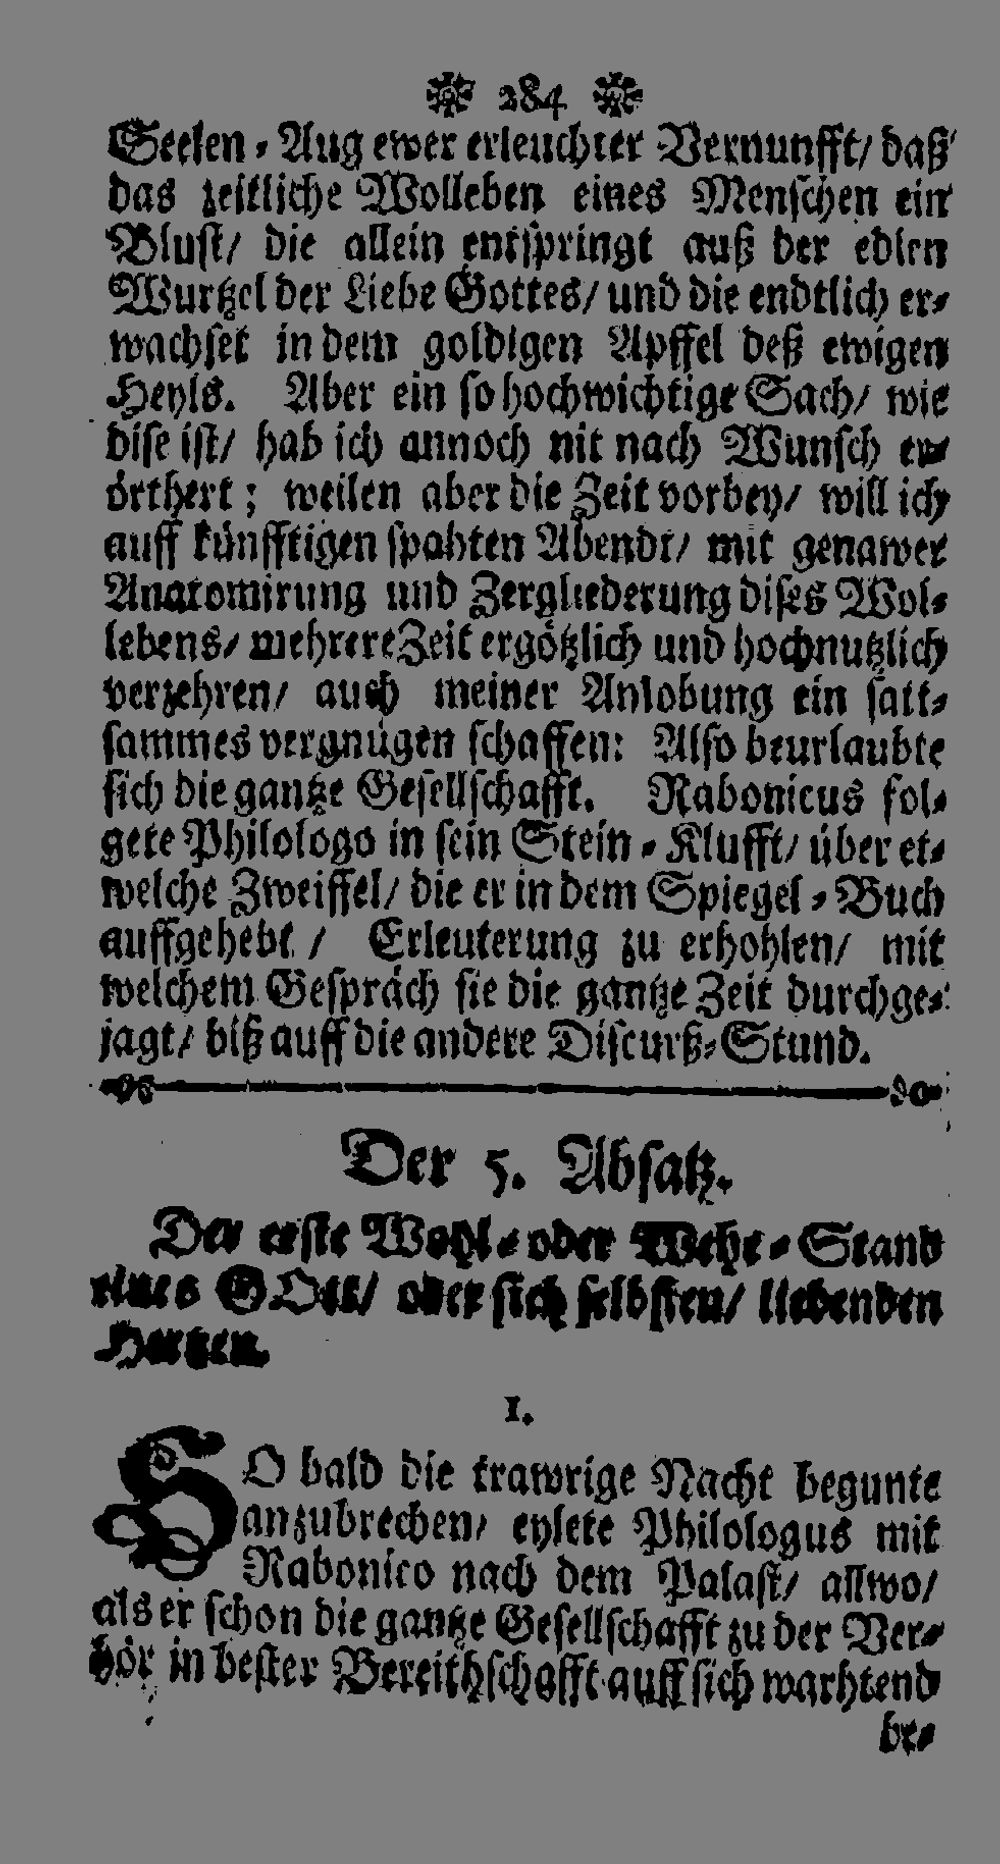 284
Seelen-Aug ewer erleuchter Vernunfft/ daß
das zeitliche Wolleben eines Menschen ein
Blust/ die allein entspringt auß der edlen
Wurtzel der Liebe Gottes/ und die endtlich er-
wachset in dem goldigen Apffel deß ewigen
Heyls. Aber ein so hochwichtige Sach/ wie
dise ist/ hab ich annoch nit nach Wunsch er-
örthert; weilen aber die Zeit vorbey/ will ich
auff künfftigen spahten Abendt/ mit genawer
Anatomirung und Zergliederung dises Wol-
lebens/ mehrere Zeit ergötzlich und hochnutzlich
verzehren/ auch meiner Anlobung ein satt-
sammes vergnügen schaffen: Also beurlaubte
sich die gantze Gesellschafft. Rabonicus fol-
gete Philologo in sein Stein-Klufft/ über et-
welche Zweiffel/ die er in dem Spiegel-Buch
auffgehebt/ Erleuterung zu erhohlen/ mit
welchem Gespräch sie die gantze Zeit durchge-
jagt/ biß auff die andere Discurß-Stund.
Der 5. Absatz.
Der erste Wohl- oder Wehe-Stand
eines GOtt/ oder sich selbsten/ liebenden
Hertzen.
1.
SO bald die trawrige Nacht begunte
anzubrechen/ eylete Philologus mit
Rabonico nach dem Palast/ allwo/
als er schon die gantze Gesellschafft zu der Ver-
hör in bester Bereithschafft auff sich warhtend
be-